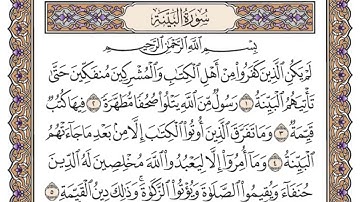 سُورَةُ البَيِّنَةِ
بِسْمِ اللَّهِ الرَّحْمَٰنِ الرَّحِيمِ
لَمْ يَكُنِ الَّذِينَ كَفَرُوا مِنْ أَهْلِ الْكِتَٰبِ وَالْمُشْرِكِينَ مُنفَكِّينَ حَتَّىٰ
تَأْتِيَهُمُ الْبَيِّنَةُ ١ رَسُولٌ مِّنَ اللَّهِ يَتْلُوا صُحُفًا مُّطَهَّرَةً ٢ فِيهَا كُتُبٌ
قَيِّمَةٌ ٣ وَمَا تَفَرَّقَ الَّذِينَ أُوتُوا الْكِتَٰبَ إِلَّا مِن بَعْدِ مَا جَاءَتْهُمُ
الْبَيِّنَةُ ٤ وَمَا أُمِرُوا إِلَّا لِيَعْبُدُوا اللَّهَ مُخْلِصِينَ لَهُ الدِّينَ
حُنَفَاءَ وَيُقِيمُوا الصَّلَوٰةَ وَيُؤْتُوا الزَّكَوٰةَ وَذَٰلِكَ دِينُ الْقَيِّمَةِ ٥